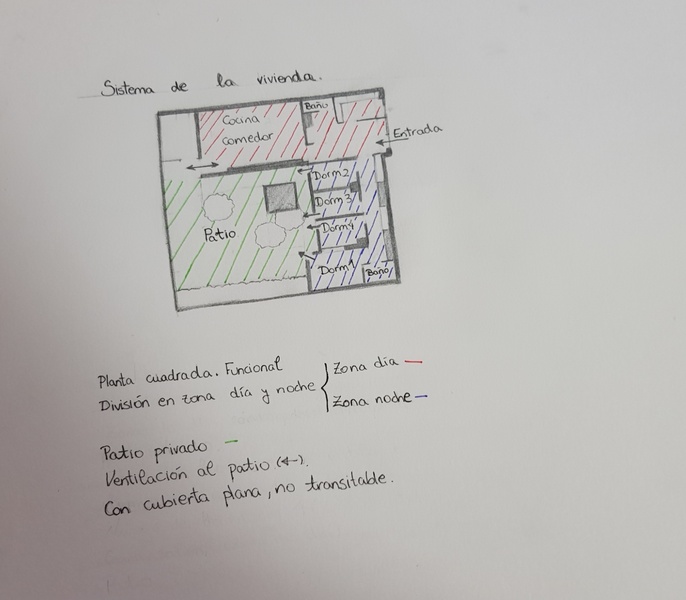 Sistema de la vivienda.
Cocina
comedor
Baño
Entrada
Dorm2
Dorm3
Dorm4
Patio
Dorm1
Baño
Planta cuadrada. Funcional
División en zona día y noche
Zona día
Zona noche
Patio privado
Ventilación al patio (←).
Con cubierta plana, no transitable.